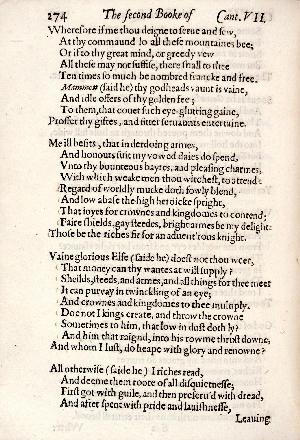 274 The second Booke of Cant. VII.
Wherefore if me thou deigne to serue and sew,
At thy commaund lo all these mountaines bee;
Or if to thy great mind, or greedy vew
All these may not suffise, there shall to thee
Ten times so much be nombred francke and free.
Mammon (said he) thy godheads vaunt is vaine,
And idle offers of thy golden fee;
To them, that couet such eye-glutting gaine,
Proffer thy giftes, and fitter seruaunts entertaine.
Me ill besits, that in derdoing armes,
And honours suit my vowed daies do spend,
Vnto thy bounteous baytes, and pleasing charmes,
With which weake men thou witchest, to attend:
Regard of worldly mucke doth fowly blend,
And low abase the high heroicke spright,
That ioyes for crownes and kingdomes to contend;
Faire shields, gay steedes, bright armes be my delight:
Those be the riches fit for an aduent'rous knight.
Vaine glorious Elfe (saide he) doest not thou weet,
That money can thy wantes at will supply?
Sheilds, steeds, and armes, and all things for thee meet
It can puruay in twinckling of an eye;
And crownes and kingdomes to thee multiply.
Doe not I kings create, and throw the crowne
Sometimes to him, that low in dust doth ly?
And him that raignd, into his rowme thrust downe,
And whom I lust, do heape with glory and renowne?
All otherwise (saide he) I riches read,
And deeme them roote of all disquietnesse;
First got with guile, and then preseru'd with dread,
And after spent with pride and lauishnesse,
Leauing